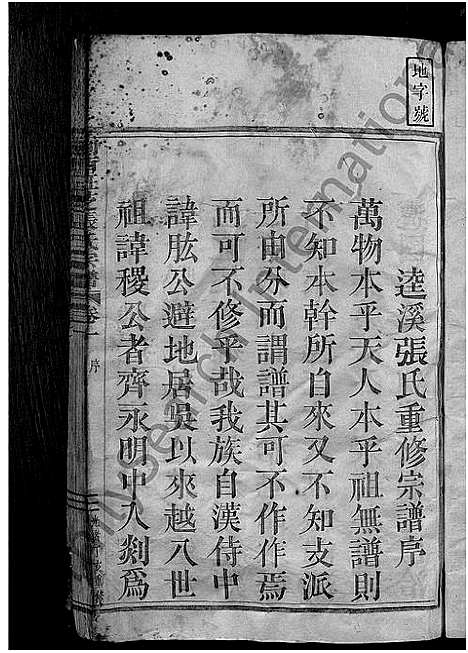 地字號
逵溪張氏重修宗譜序
萬物本乎天人本乎祖無譜則
不知本幹所自來又不知支派
所由分而謂譜其可不作作焉
而可不修乎哉我族自漢侍中
諱肱公避地居吳以來越八世
祖諱稷公者齊永明中入剡爲
張氏宗譜
卷一
序
FamilySearch International